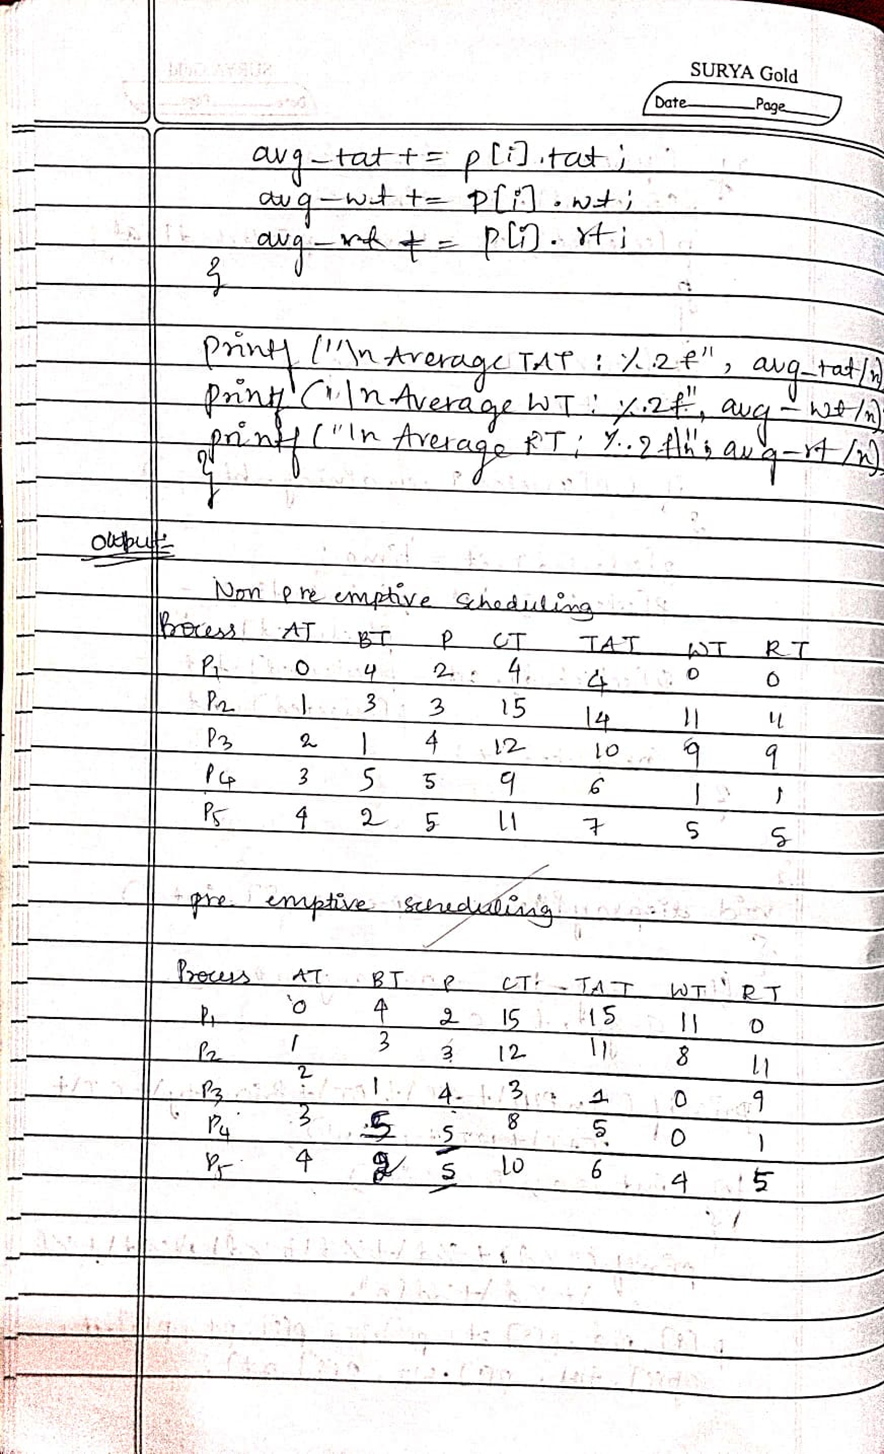 SURYA Gold
Date Page
avg_tat += p[i].tat;
avg_wt += p[i].wt;
avg_rt += p[i].rt;
}
printf ("\n Average TAT : %.2f", avg_tat/n)
printf ("\n Average WT : %.2f", avg_wt/n)
printf ("\n Average RT : %.2f\n", avg_rt/n)
}
Output:
Non pre emptive scheduling
Process AT BT P CT TAT WT RT
P1 0 4 2 4 4 0 0
P2 1 3 3 15 14 11 11
P3 2 1 4 12 10 9 9
P4 3 5 5 9 6 1 1
P5 4 2 5 11 7 5 5
pre emptive scheduling
Process AT BT P CT TAT WT RT
P1 0 4 2 15 15 11 0
P2 1 3 3 12 11 8 11
P3 2 1 4 3 1 0 9
P4 3 5 5 8 5 0 1
P5 4 2 5 10 6 4 5